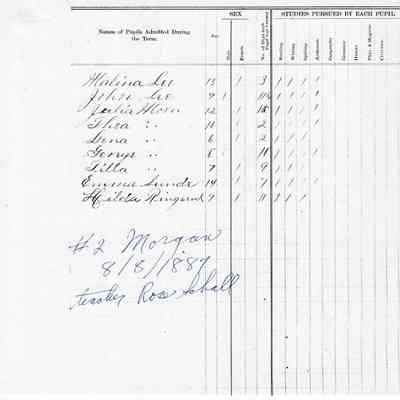 SEX STUDIES PURSUED BY EACH PUPIL
Names of Pupils Admitted During the Term. Age Male Female No. of Days each Pupil was present Reading Writing Spelling Arithmetic Geography Grammar History Phys. & Hygiene Civics
Malina Lee 13 1 3 1 1 1 1
John Lee 9 1 1 1 1 1
Julia Moen 12 1 1 1 1 1
Thea " 10 1 2 1 1 1 1
Lena " 6 1 2 1 1 1
George " 8 1 1 1 1 1
Tilla " 7 1 9 1 1 1
Emma Sunde 14 1 7 1 1 1 1
Hilda Ringsrud 9 1 11 1 1 1
#2 Morgan
8/8/1887
teacher Rose Schall